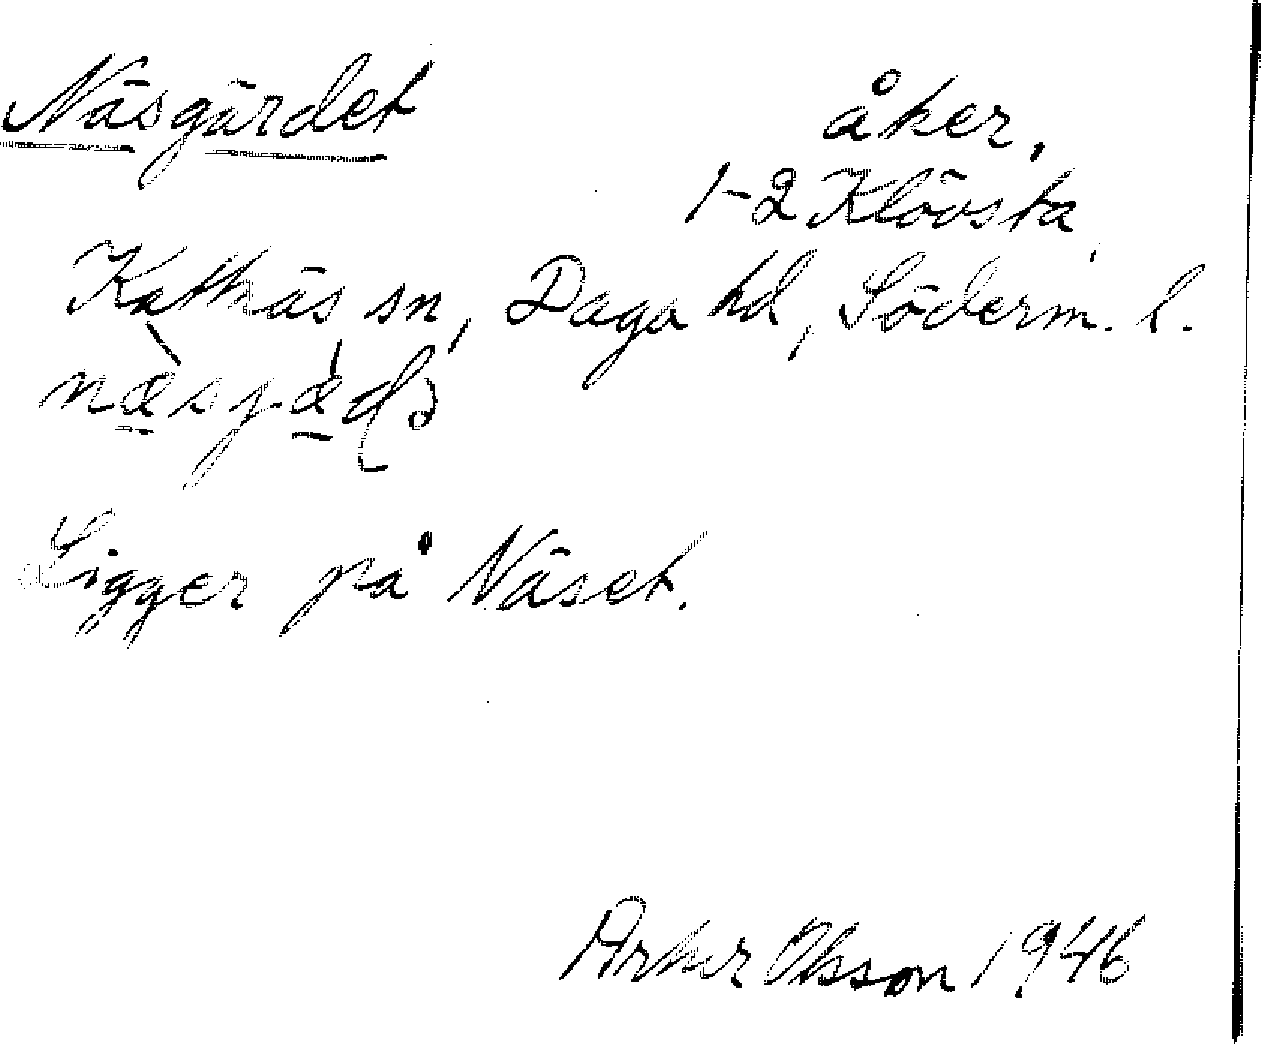 Näsgärdet
åker,
1-2 Klövsta
Kattnäs sn, Daga hd, Söderm. l.
Ligger på Näset.
Olsson 1946